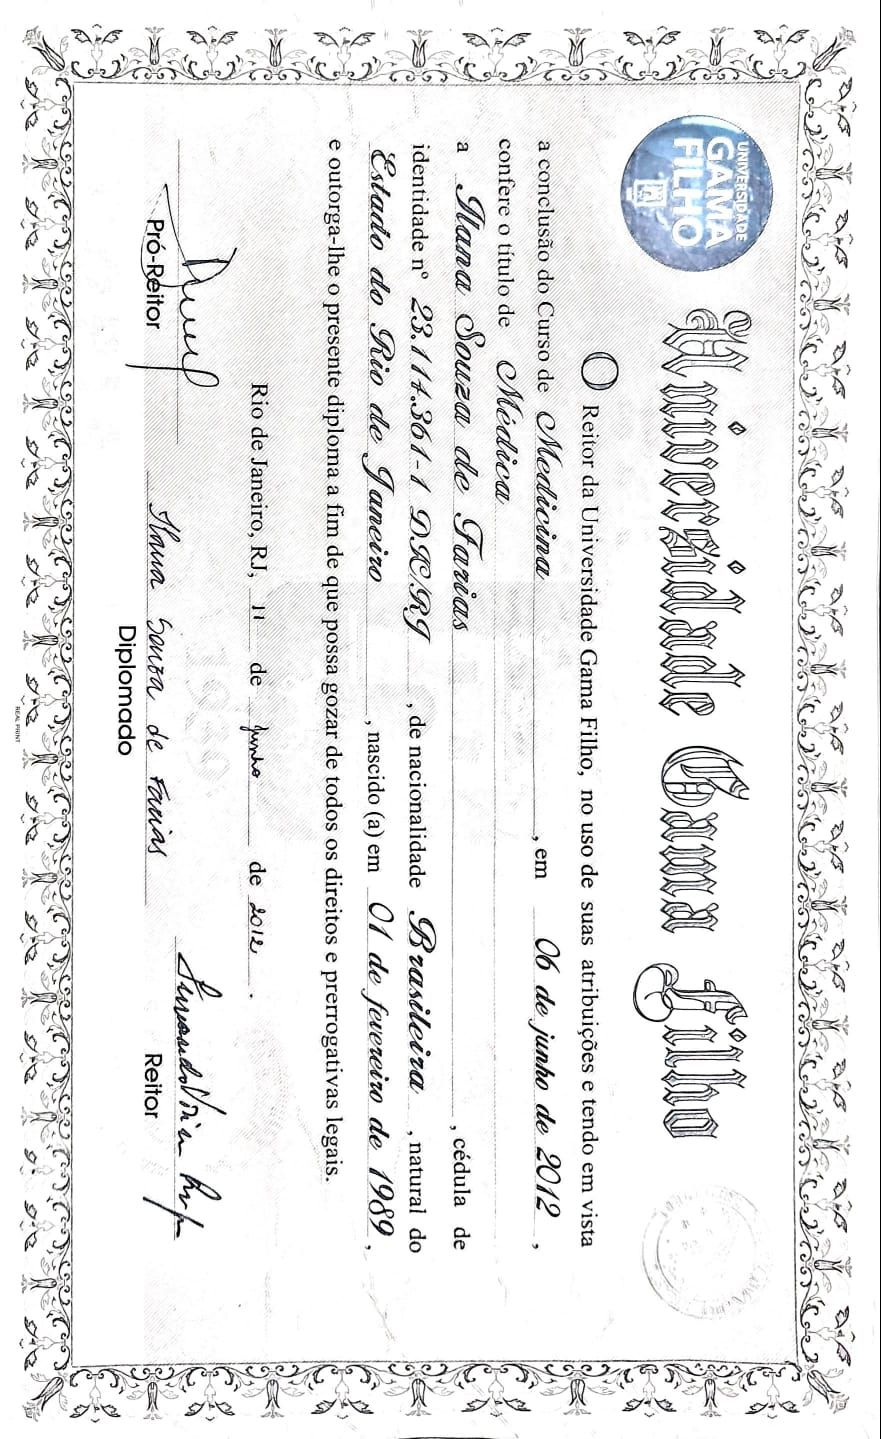 UNIVERSIDADE
GAMA
FILHO
Universidade Gama Filho
O Reitor da Universidade Gama Filho, no uso de suas atribuições e tendo em vista
a conclusão do Curso de Medicina, em 06 de junho de 2012,
confere o título de Médica
a Ilana Souza de Farias, cédula de
identidade nº 23.114.361-1 D.I.C.RJ, de nacionalidade Brasileira, natural do
Estado do Rio de Janeiro, nascido (a) em 01 de fevereiro de 1989,
e outorga-lhe o presente diploma a fim de que possa gozar de todos os direitos e prerrogativas legais.
Rio de Janeiro, RJ, 11 de junho de 2012.
Ilana Souza de Farias
Pró-Reitor
Diplomado
Reitor
REAL PRINT